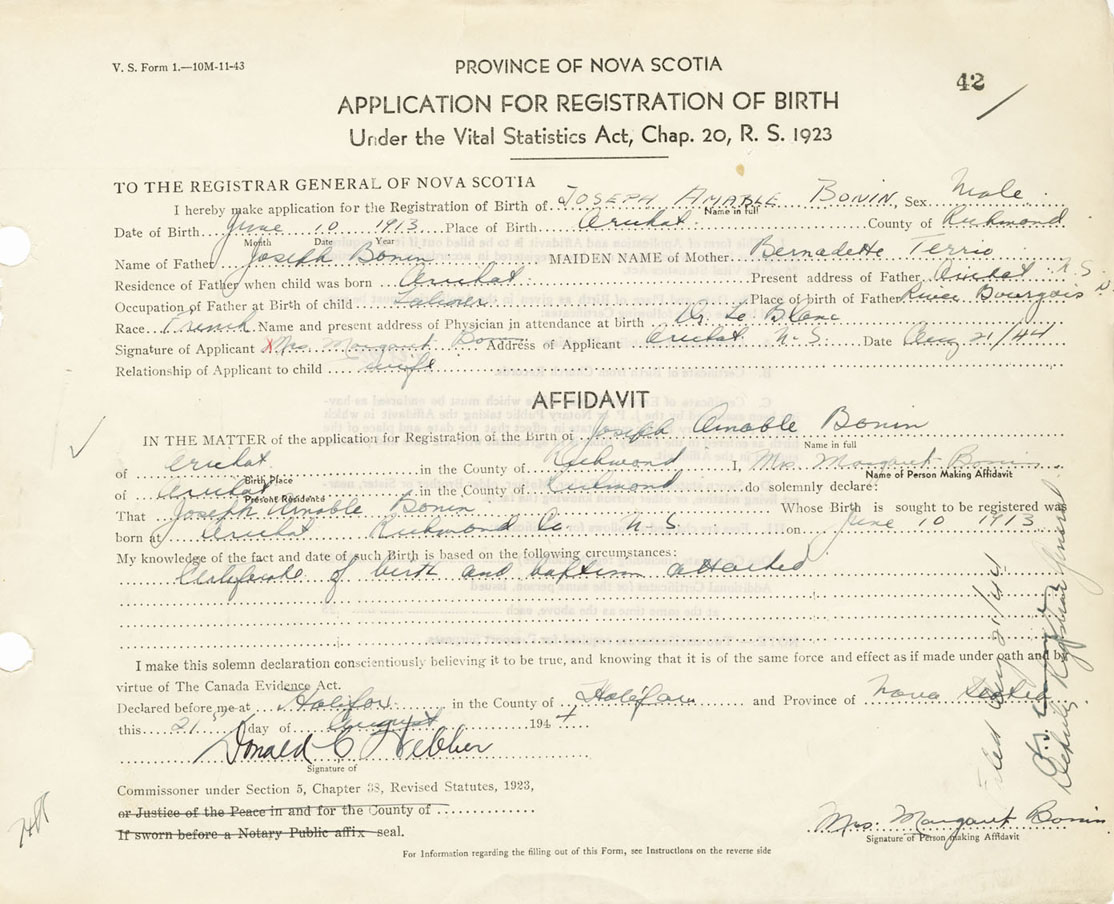 V. S. Form 1.—10M-11-43
PROVINCE OF NOVA SCOTIA
42
APPLICATION FOR REGISTRATION OF BIRTH
Under the Vital Statistics Act, Chap. 20, R. S. 1923
TO THE REGISTRAR GENERAL OF NOVA SCOTIA
I hereby make application for the Registration of Birth of JOSEPH AMABLE BONIN Sex Male
Name in full
Date of Birth June 10 1913 Place of Birth Arichat County of Richmond
Month Date Year
Name of Father Joseph Bonin MAIDEN NAME of Mother Bernadette Terrio
Residence of Father when child was born Arichat Present address of Father Arichat N. S.
Occupation of Father at Birth of child Laborer Place of birth of Father River Bourgois N.
Race French Name and present address of Physician in attendance at birth Dr. Le Blanc
Signature of Applicant X Mrs. Margaret Bonin Address of Applicant Arichat N. S. Date Aug 21/44
Relationship of Applicant to child wife
AFFIDAVIT
IN THE MATTER of the application for Registration of the Birth of Joseph Amable Bonin
Name in full
of Arichat in the County of Richmond I, Mrs. Margaret Bonin
Birth Place Name of Person Making Affidavit
of Arichat in the County of Richmond do solemnly declare:
Present Residence
That Joseph Amable Bonin Whose Birth is sought to be registered was
born at Arichat Richmond Co N. S. on June 10 1913
My knowledge of the fact and date of such Birth is based on the following circumstances:
Certificate of birth and baptism attached
I make this solemn declaration conscientiously believing it to be true, and knowing that it is of the same force and effect as if made under oath and by
virtue of The Canada Evidence Act.
Declared before me at Halifax in the County of Halifax and Province of Nova Scotia
this 21st day of August 1944
Donald C Webber
Signature of
Commissoner under Section 5, Chapter 38, Revised Statutes, 1923,
or Justice of the Peace in and for the County of
If sworn before a Notary Public affix seal.
Mrs. Margaret Bonin
Signature of Person making Affidavit
For Information regarding the filling out of this Form, see Instructions on the reverse side
Filed Aug 21/44
Deputy Registrar General